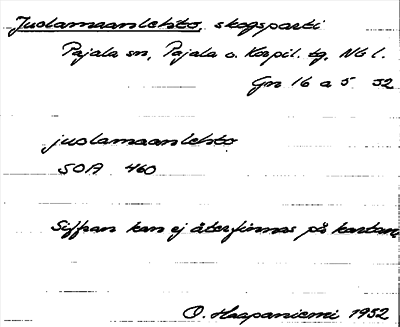 Juolamaanlehto, skogsparti
Pajala sn, Pajala o. Korpil. tg, Nb l.
Gn 16 a 5 52
juolamaanlehto
SOA 460
Siffran kan ej återfinnas på kartan
O. Haapaniemi 1952